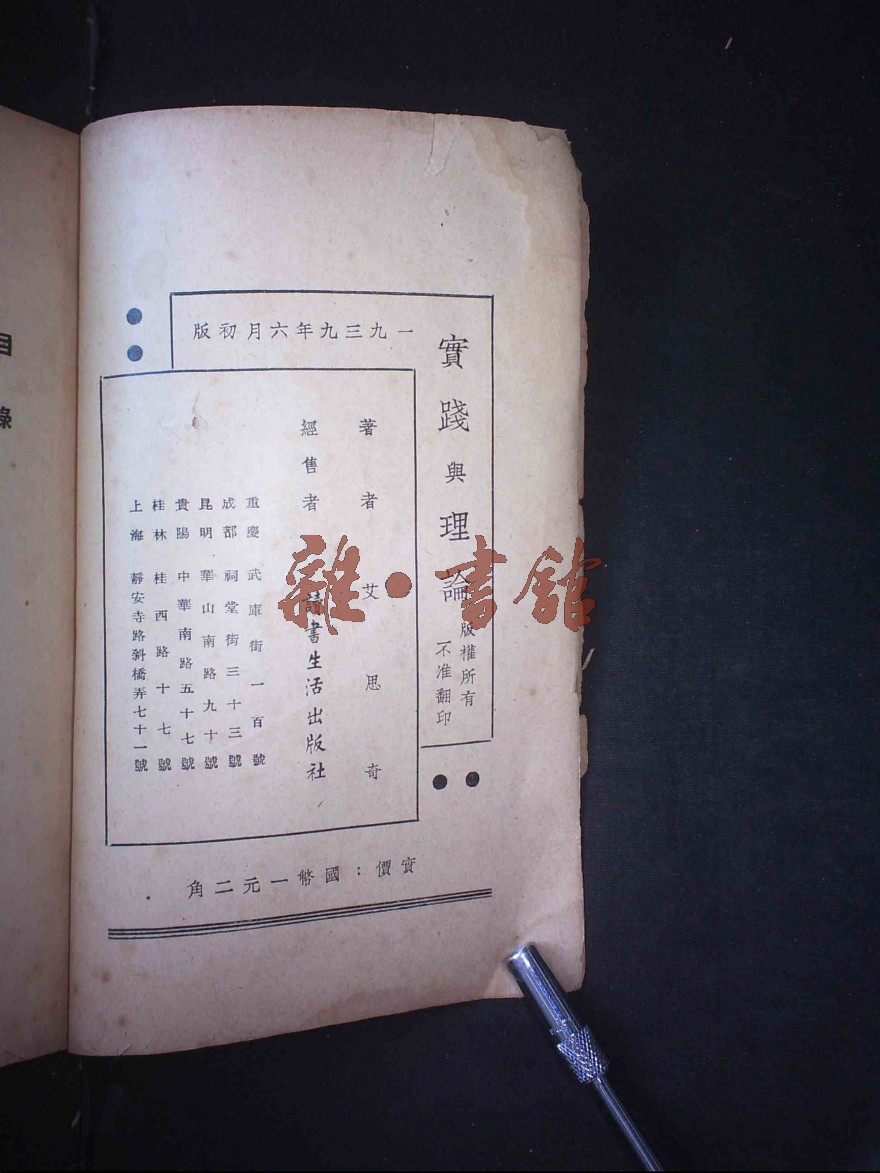 實踐與理論
版權所有
不准翻印
一九三九年六月初版
著者 艾思奇
經售者 讀書生活出版社
重慶 武庫街一百號
成都 祠堂街三十三號
昆明 華山南路九十號
貴陽 中華南路五十七號
桂林 桂西路十七號
上海 靜安寺路斜橋弄七十一號
實價：國幣一元二角
目錄
雜·書館